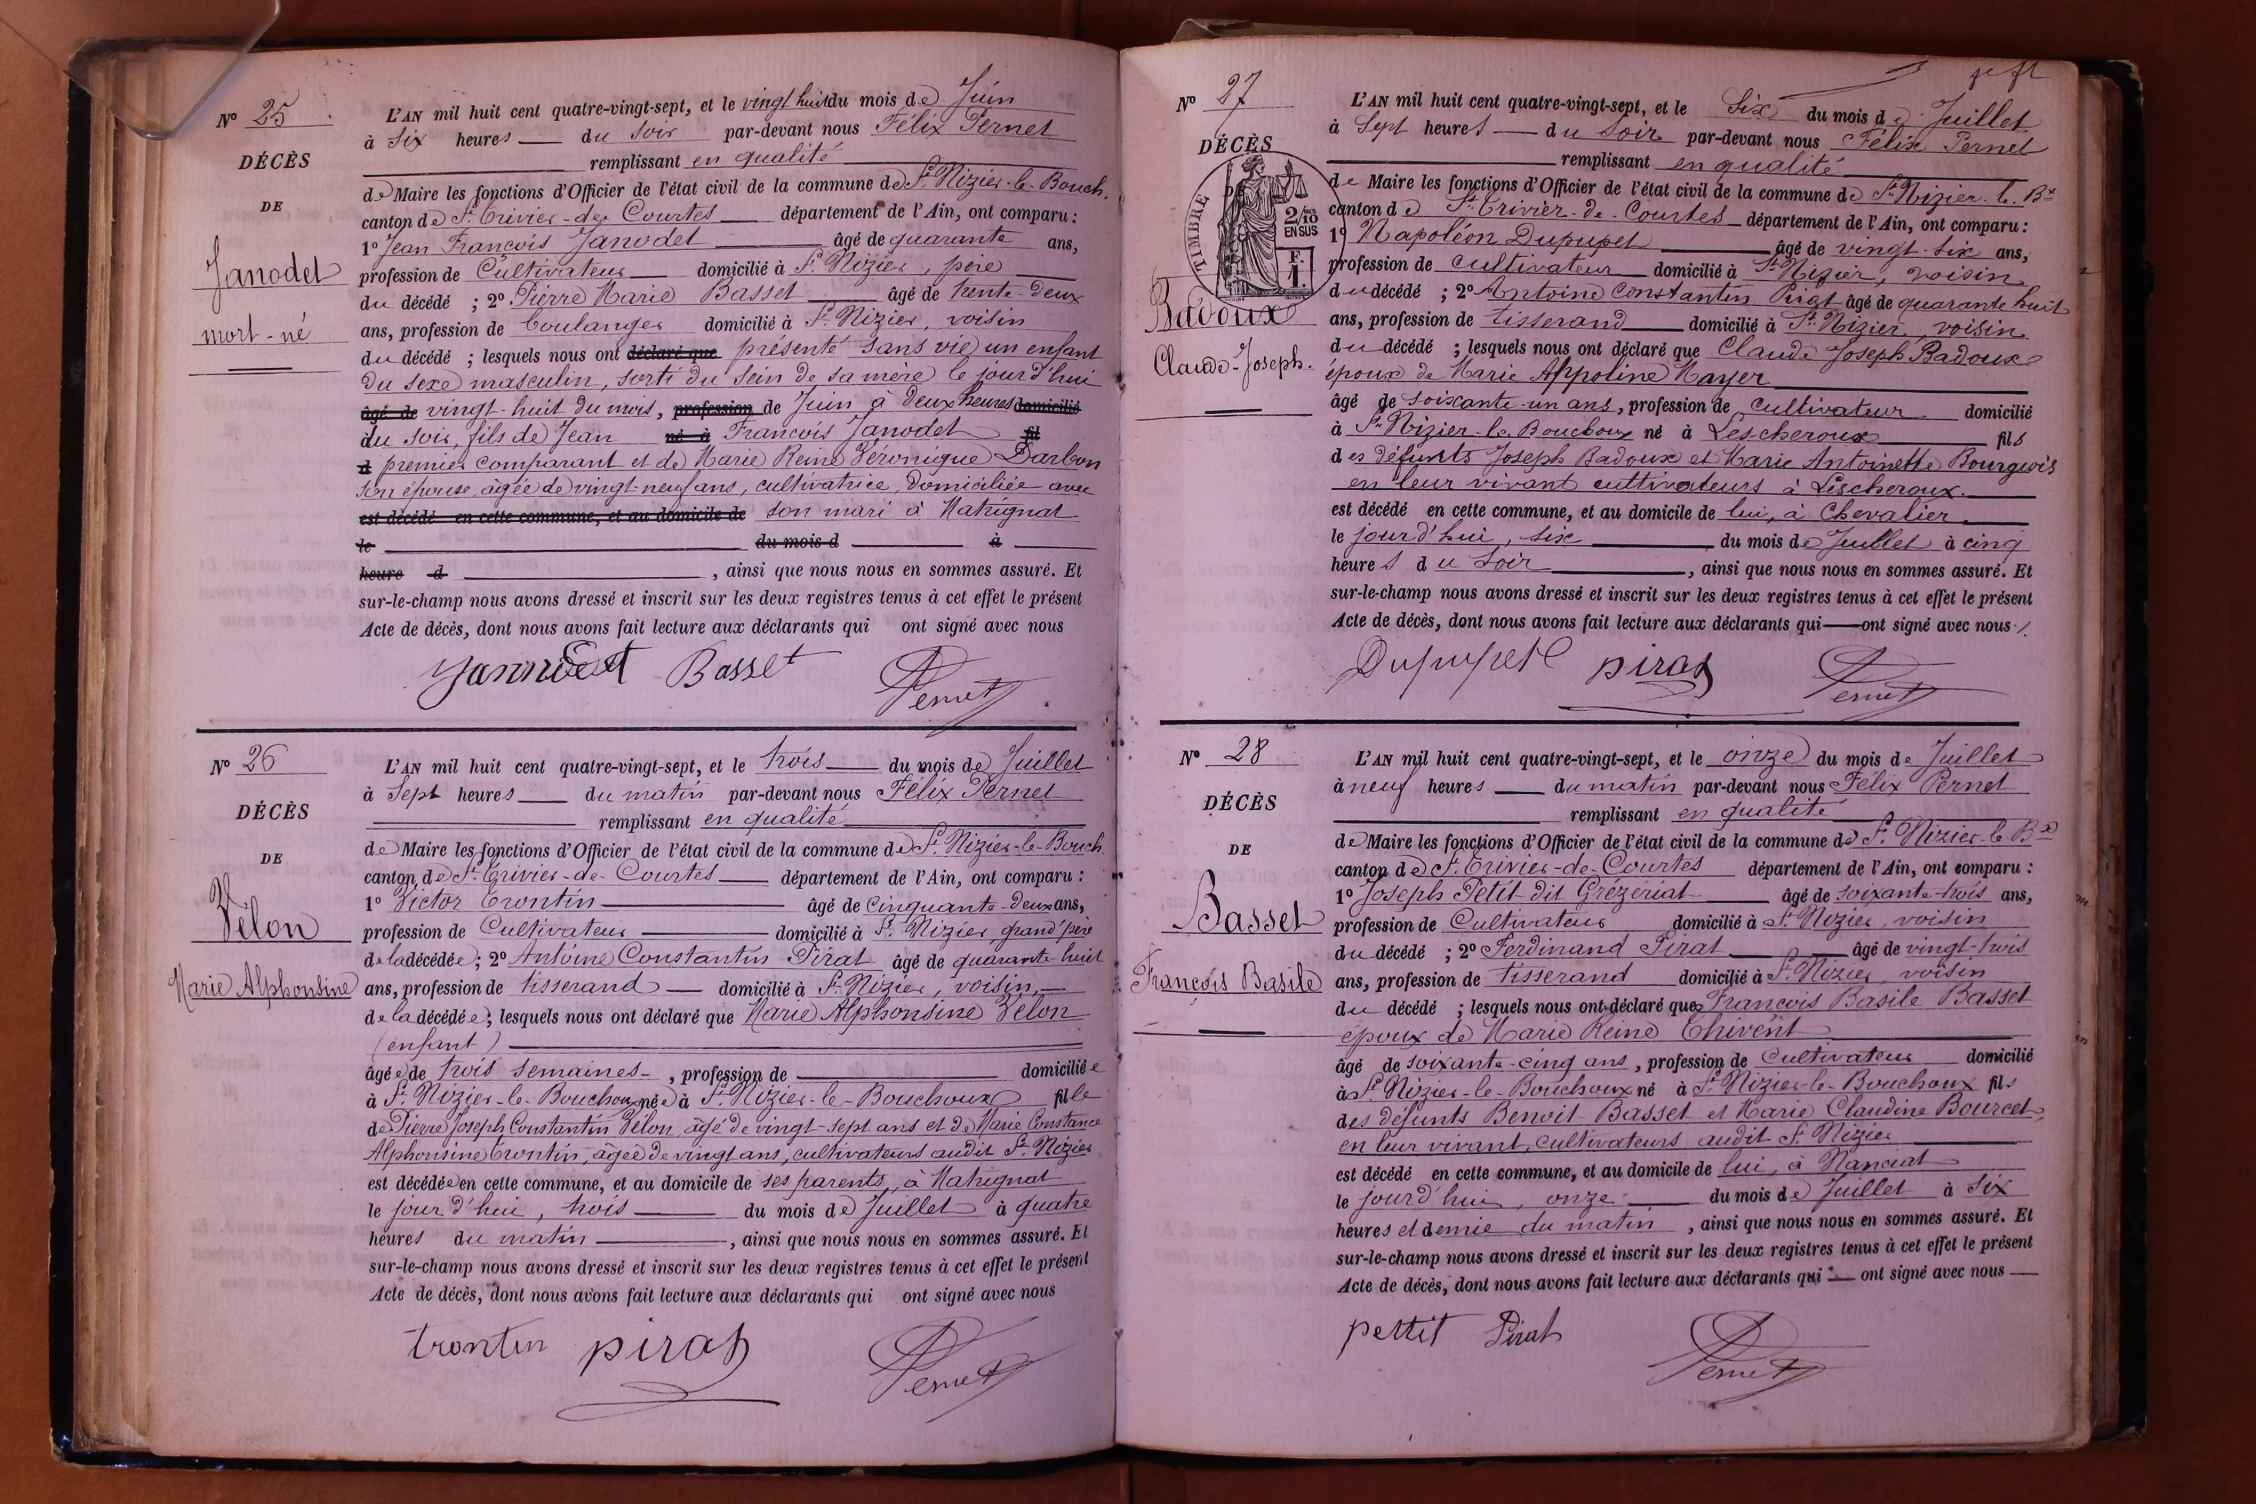 N° 25
DÉCÈS
DE
Janodet
mort-né
L'AN mil huit cent quatre-vingt-sept, et le vingt huit du mois de Juin
à Six heures du soir par-devant nous Félix Pernet
remplissant en qualité
de Maire les fonctions d'Officier de l'état civil de la commune de St Nizier-le-Bouch.
canton de St Trivier-de-Courtes département de l'Ain, ont comparu :
1° Jean François Janodet âgé de quarante ans,
profession de Cultivateur domicilié à St Nizier, père
du décédé ; 2° Pierre Marie Basset âgé de trente-deux
ans, profession de boulanger domicilié à St Nizier, voisin
du décédé ; lesquels nous ont déclaré que présenté sans vie un enfant
du sexe masculin, sorti du sein de sa mère le jour d'hui
âgé de vingt-huit du mois, profession de Juin à deux heures domicilié
du soir, fils de Jean né à François Janodet fil
d premier comparant et de Marie Reine Véronique Darbon
son épouse, âgée de vingt-neuf ans, cultivatrice, domiciliée avec
est décédé en cette commune, et au domicile de son mari à Matrignat
le du mois d à
heure d , ainsi que nous nous en sommes assuré. Et
sur-le-champ nous avons dressé et inscrit sur les deux registres tenus à cet effet le présent
Acte de décès, dont nous avons fait lecture aux déclarants qui ont signé avec nous
Basset Pernet
N° 26
DÉCÈS
DE
Vélon
Marie Alphonsine
L'AN mil huit cent quatre-vingt-sept, et le trois du mois de Juillet
à Sept heures du matin par-devant nous Félix Pernet
remplissant en qualité
de Maire les fonctions d'Officier de l'état civil de la commune de St Nizier-le-Bouch.
canton de St Trivier-de-Courtes département de l'Ain, ont comparu :
1° Victor Trontin âgé de cinquante-deux ans,
profession de Cultivateur domicilié à St Nizier, grand'père
de la décédée ; 2° Antoine Constantin Pirat âgé de quarante-huit
ans, profession de tisserand domicilié à St Nizier, voisin
de la décédée ; lesquels nous ont déclaré que Marie Alphonsine Vélon
(enfant)
âgée de trois semaines , profession de domiciliée
à St Nizier-le-Bouchoux née à St Nizier-le-Bouchoux fille
de Pierre Joseph Constantin Vélon, âgé de vingt-sept ans et de Marie Constance
Alphonsine Trontin, âgée de vingt ans, cultivateurs audit St Nizier
est décédée en cette commune, et au domicile de ses parents, à Matrignat
le jour d'hui, trois du mois de Juillet à quatre
heures du matin , ainsi que nous nous en sommes assuré. Et
sur-le-champ nous avons dressé et inscrit sur les deux registres tenus à cet effet le présent
Acte de décès, dont nous avons fait lecture aux déclarants qui ont signé avec nous
trontin pirat Pernet
N° 27
DÉCÈS
TIMBRE
2/10
EN SUS
F.
1.
Badoux
Claude-Joseph.
L'AN mil huit cent quatre-vingt-sept, et le Six du mois de Juillet
à Sept heures du Soir par-devant nous Félix Pernet
remplissant en qualité
de Maire les fonctions d'Officier de l'état civil de la commune de St Nizier-le-Bx
canton de St Trivier-de-Courtes département de l'Ain, ont comparu :
1° Napoléon Dupupet âgé de vingt-six ans,
profession de cultivateur domicilié à St Nizier, voisin
du décédé ; 2° Antoine Constantin Pirat âgé de quarante huit
ans, profession de tisserand domicilié à St Nizier, voisin
du décédé ; lesquels nous ont déclaré que Claude Joseph Badoux
époux de Marie Appoline Mayer
âgé de soixante-un ans, profession de cultivateur domicilié
à St Nizier-le-Bouchoux né à Lescheroux fils
des défunts Joseph Badoux et Marie Antoinette Bourgeois
en leur vivant cultivateurs à Lescheroux.
est décédé en cette commune, et au domicile de lui, à Chevalier
le jourd'hui, six du mois de Juillet à cinq
heures du soir , ainsi que nous nous en sommes assuré. Et
sur-le-champ nous avons dressé et inscrit sur les deux registres tenus à cet effet le présent
Acte de décès, dont nous avons fait lecture aux déclarants qui ont signé avec nous
Dupupet pirat Pernet
N° 28
DÉCÈS
DE
Basset
François Basile
L'AN mil huit cent quatre-vingt-sept, et le onze du mois de Juillet
à neuf heures du matin par-devant nous Félix Pernet
remplissant en qualité
de Maire les fonctions d'Officier de l'état civil de la commune de St Nizier-le-Bx
canton de St Trivier-de-Courtes département de l'Ain, ont comparu :
1° Joseph Petit dit Grézériat âgé de soixante-trois ans,
profession de Cultivateur domicilié à St Nizier, voisin
du décédé ; 2° Ferdinand Pirat âgé de vingt-trois
ans, profession de tisserand domicilié à St Nizier, voisin
du décédé ; lesquels nous ont déclaré que François Basile Basset
époux de Marie Reine Thivent
âgé de soixante-cinq ans, profession de Cultivateur domicilié
à St Nizier-le-Bouchoux né à St Nizier-le-Bouchoux fils
des défunts Benoit Basset et Marie Claudine Bourcet,
en leur vivant, cultivateurs audit St Nizier
est décédé en cette commune, et au domicile de lui, à Nanciat
le jourd'hui, onze du mois de Juillet à six
heures et demie du matin , ainsi que nous nous en sommes assuré. Et
sur-le-champ nous avons dressé et inscrit sur les deux registres tenus à cet effet le présent
Acte de décès, dont nous avons fait lecture aux déclarants qui ont signé avec nous
pettit Pirat Pernet